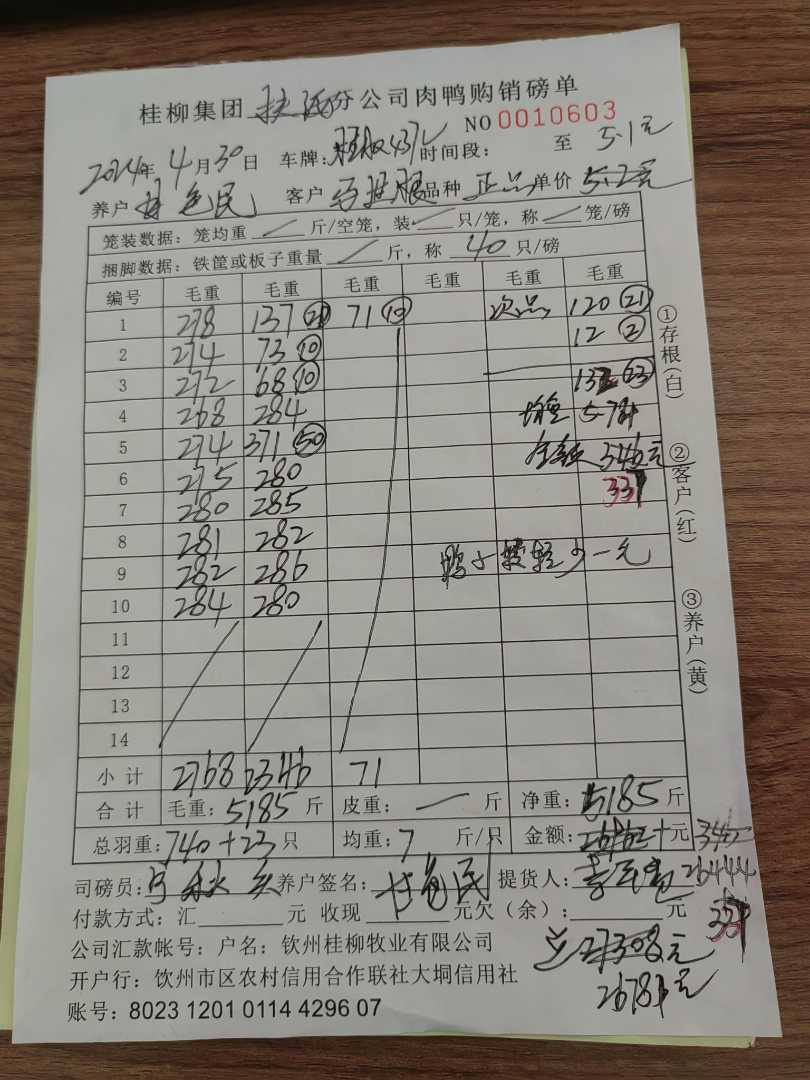 桂柳集团 分公司肉鸭购销磅单
NO 0010603
2024年 4月30日 车牌: 时间段: 至 5.1元
养户 民 客户 品种 正品 单价 5.2元
笼装数据：笼均重 斤/空笼，装 只/笼，称 笼/磅
捆脚数据：铁筐或板子重量 斤，称 40 只/磅
编号 毛重 毛重 毛重 毛重 毛重 毛重
1 278 137 (20) 71 (10) 次品 120 (21)
2 274 73 (10) 12 (2)
3 272 68 (10) 132 (23)
4 268 284 均重 5.74
5 274 371 (50) 金额 346元
6 275 280 337
7 280 285
8 281 282
9 282 286 鸭子较轻少一元
10 284 280
11
12
13
14
小计 2768 2346 71
合计 毛重：5185 斤 皮重： 斤 净重：5185 斤
总羽重：740+23 只 均重：7 斤/只 金额：26962+元 346
司磅员： 养户签名： 民 提货人： 26444
付款方式：汇 元 收现 元 欠（余）： 元 337
公司汇款帐号：户名：钦州桂柳牧业有限公司 总27308元
开户行：钦州市区农村信用合作联社大垌信用社 26781元
账号：8023 1201 0114 4296 07
①存根（白）
②客户（红）
③养户（黄）